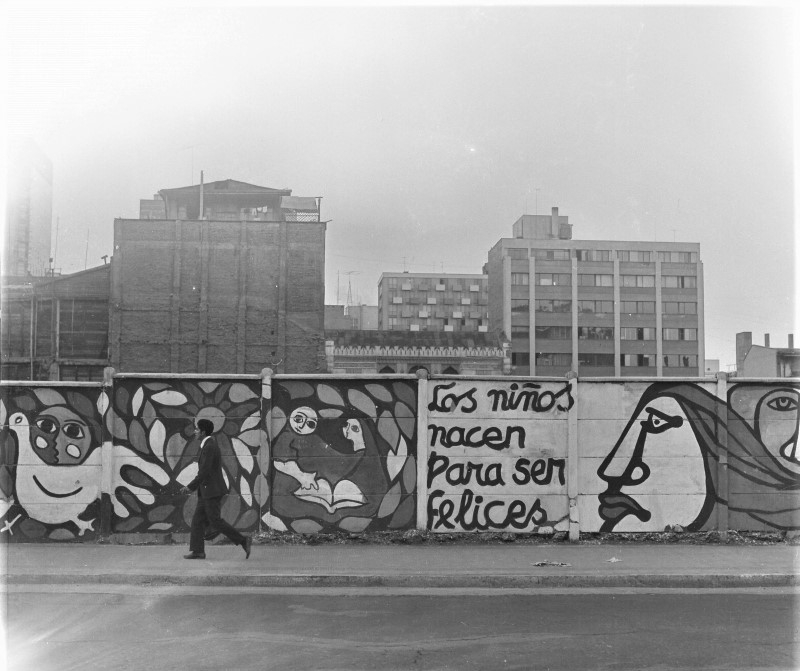 Los niños
nacen
para ser
felices